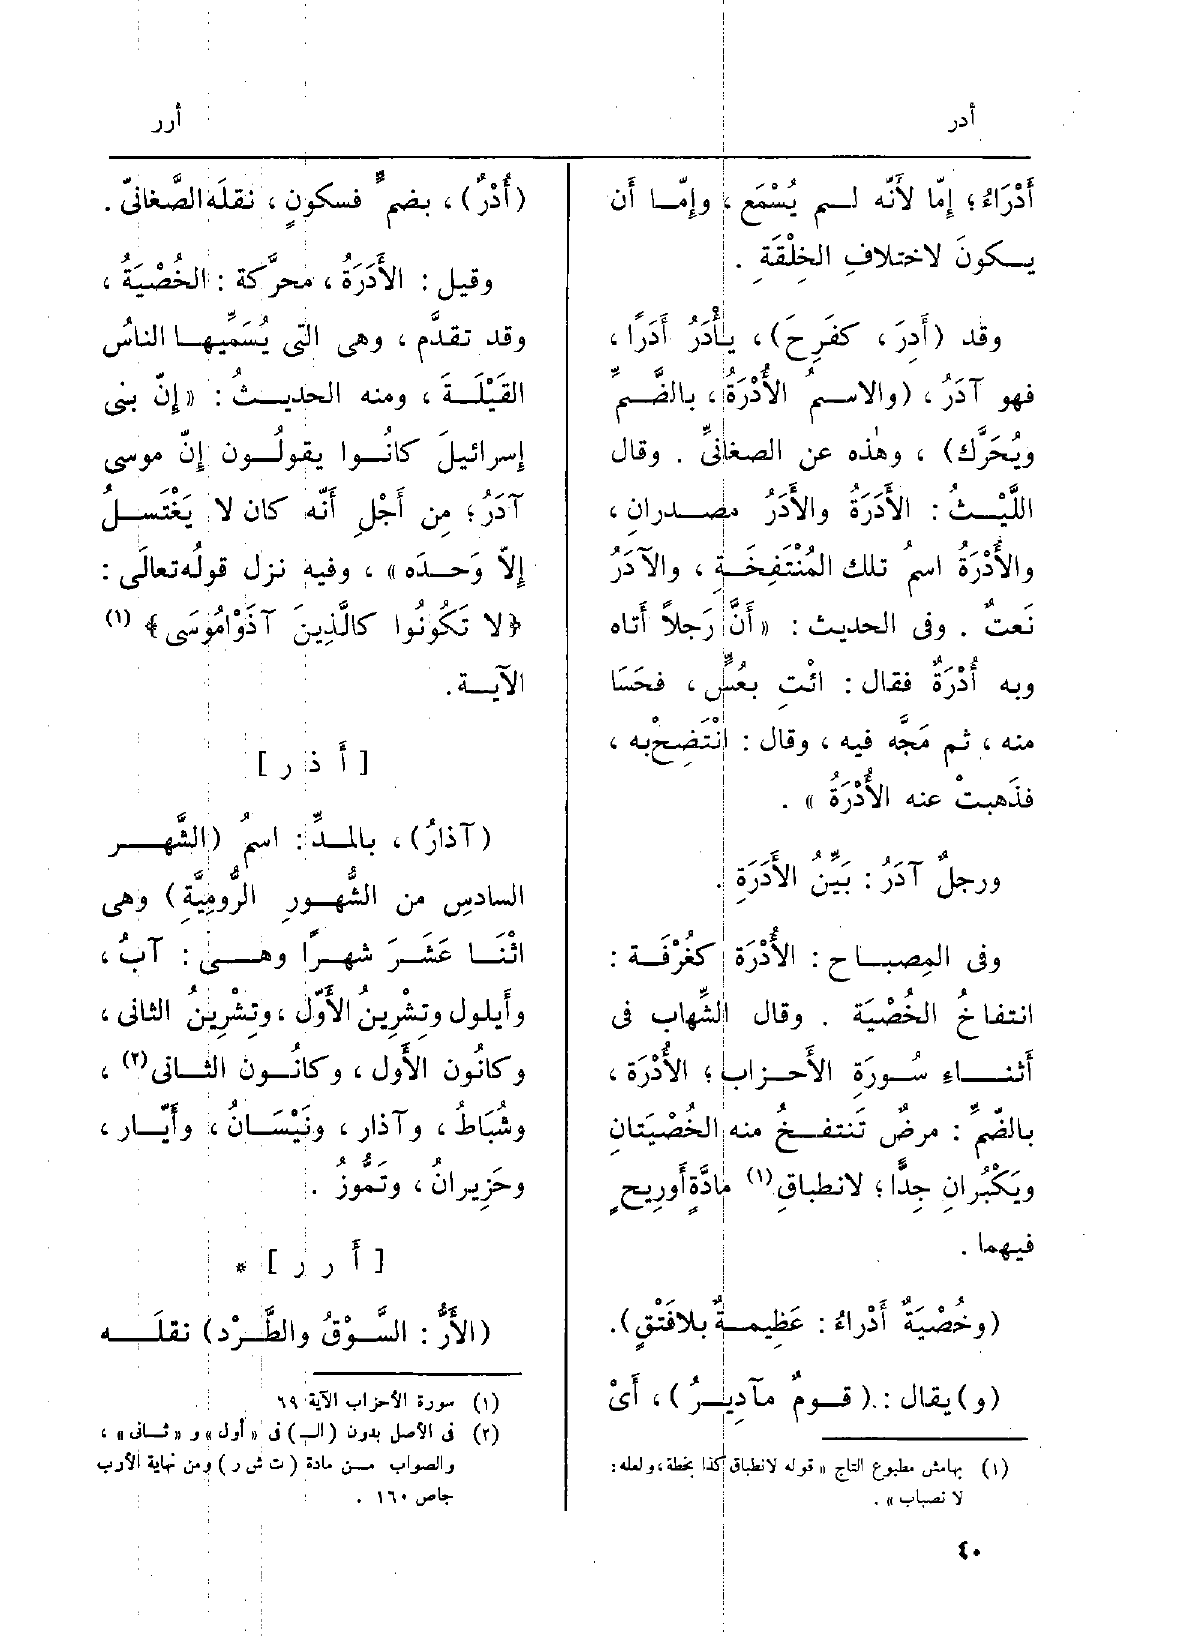 أدر
أرر
أَدْرَاءُ؛ إِمّا لأَنّه لـم يُسْمَع ، وإِمّـا أَن
يـكونَ لاختلافِ الخِلْقَةِ .
وقد (أَدِرَ ، كفَرِحَ) ، يأْدَرُ أَدَرًا ،
فهو آدَرُ ، (والاسـمُ الأُدْرَةُ ، بالضَّـمِّ
ويُحَرَّك) ، وهٰذه عن الصغانىِّ . وقال
اللَّيْـثُ : الأَدَرَةُ والأَدَرُ مصـدرانِ ،
والأُدْرَةُ اسمُ تلك المُنْتَفِخَـةِ ، والآدَرُ
نَعتٌ . وفى الحديث : « أَنَّ رَجلاً أَتاه
وبه أُدْرَةٌ فقال : ائْتِ بعُسٍّ ، فحَسَا
منه ، ثم مَجَّه فيه ، وقال : انْتَضِحْ به ،
فذَهبتْ عنه الأُدْرَةُ » .
ورجلٌ آدَرُ : بَيِّنُ الأَدَرَةِ .
وفى المِصبـاح : الأُدْرَة كغُرْفَـة :
انتفاخُ الخُصْيَة . وقال الشِّهاب فى
أَثنـاءِ سُـورَةِ الأَحـزاب ؛ الأُدْرَة ،
بالضّمِّ : مرضٌ تَنتفـخُ منه الخُصْيَتانِ
ويَكْبُرانِ جِدًّا ؛ لانطباقِ (١) مادَّةٍ أَو رِيحٍ
فيهما .
(وخُصْيَةٌ أَدْراءُ : عَظِيمـةٌ بلا فَتْقٍ).
(و) يقال : ( قـومٌ مآدِيـرُ ) ، أَىْ
(١) بهامش مطبوع التاج « قوله لانطباق كذا بخطه ، ولعله :
لا نصباب » .
(أُدْرٌ) ، بضمٍّ فسكونٍ ، نقلَه الصَّغانىّ .
وقيل : الأَدَرَةُ ، محرَّكة : الخُصْيَةُ ،
وقد تقدَّم ، وهى التى يُسَمِّيهـا الناسُ
القَيْلَـةَ ، ومنه الحديـثُ : « إِنّ بنى
إِسرائيلَ كانُـوا يقولُـون إِنّ موسى
آدَرُ ؛ مِن أَجْلِ أَنّه كان لا يَغْتَسـلُ
إِلاّ وَحـدَه » ، وفيه نزل قولُه تعالَى :
﴿لا تَكُونُوا كالَّذِينَ آذَوْا مُوسَى﴾ (١)
الآيـة.
[ أَ ذ ر ]
(آذارُ) ، بالمـدِّ : اسمُ (الشَّهـر
السادسِ من الشُّهـورِ الرُّومِيَّةِ) وهى
اثْنَـا عَشَـرَ شهـرًا وهـى : آبُ ،
وأَيلول وتِشْرِينُ الأَوّل ، وتِشْرِينُ الثانى ،
وكانُون الأَول ، وكانُـون الثـانى (٢) ،
وشُبَاطُ ، وآذار ، ونَيْسَـانُ ، وأَيّـار ،
وحَزِيرانُ ، وتَمُّوزُ .
[ أَ ر ر ] *
(الأَرُّ : السَّـوْقُ والطَّـرْد) نقلَـه
(١) سورة الأحزاب الآية ٦٩
(٢) فى الأصل بدون (الـ) فى « أول » و « ثـانى » ،
والصواب مـن مادة ( ت ش ر ) ومن نهاية الأرب
جـ١ص ١٦٠ .
٤٠